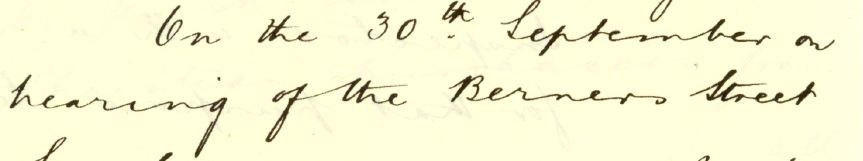 On the 30th September on
hearing of the Berners Street